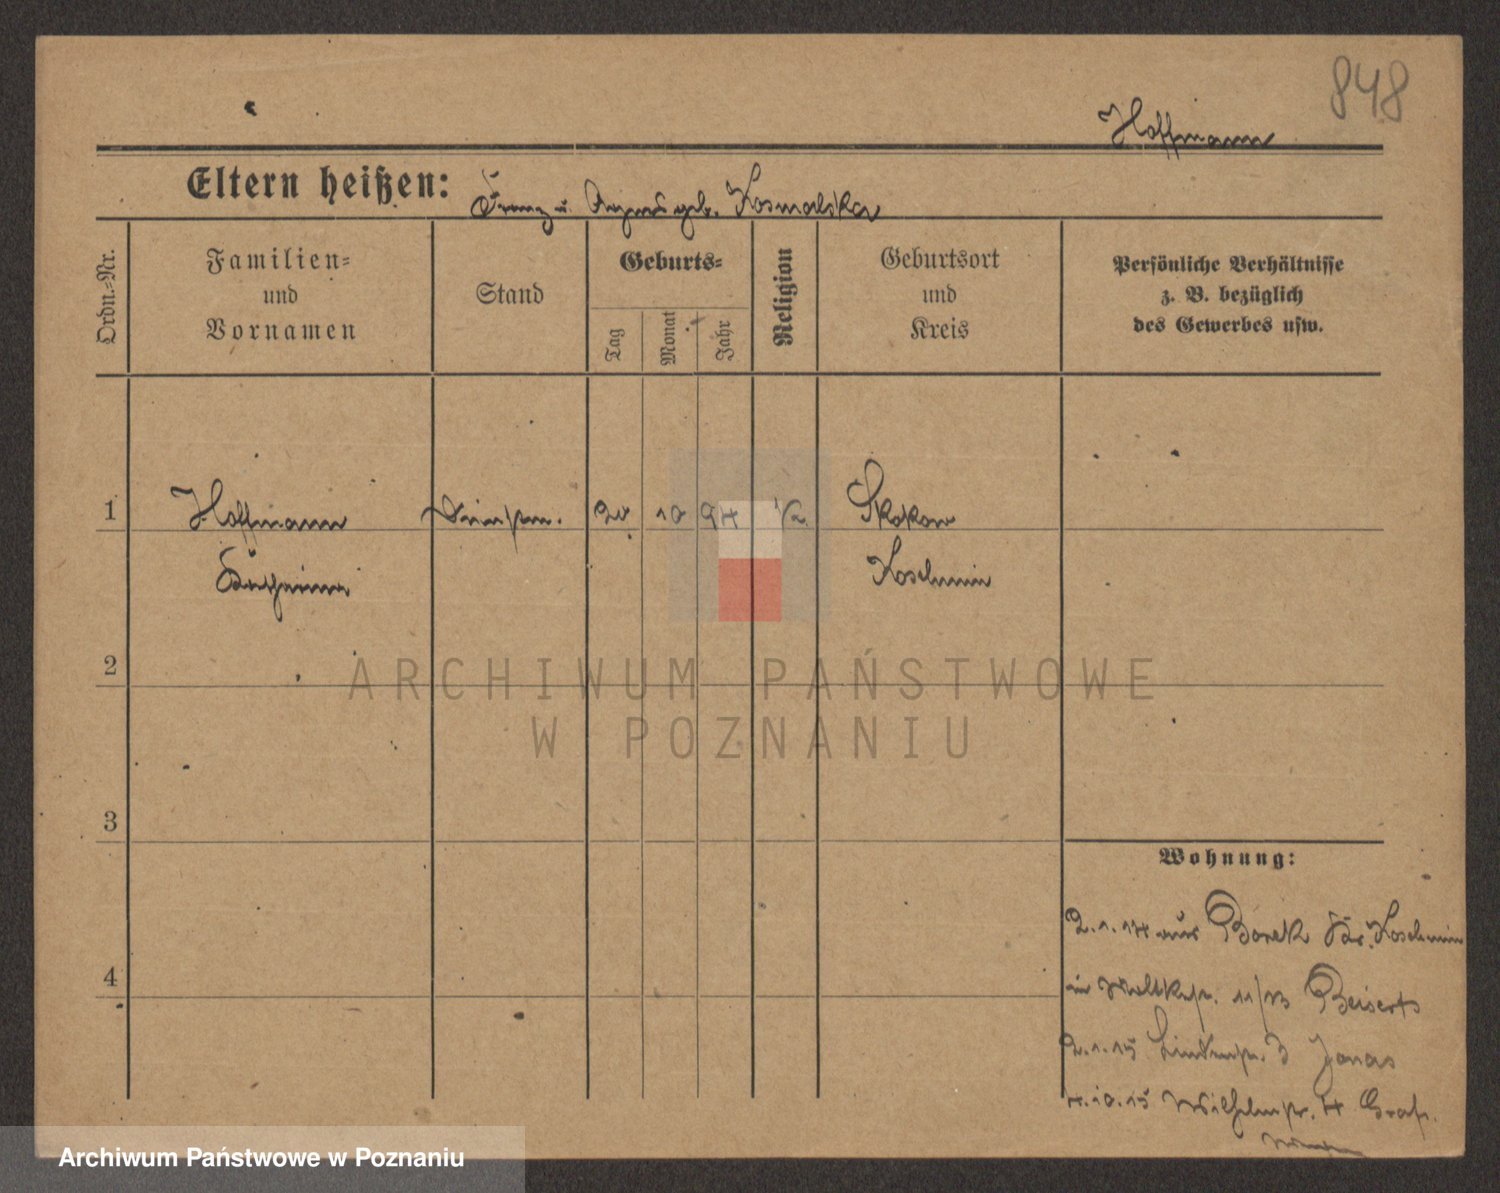 848
Hoffmann
Eltern heißen: Franz u. Agnes geb. Kosmalska
Ordn.-Nr.
Familien-
und
Vornamen
Stand
Geburts-
Tag
Monat
Jahr
Religion
Geburtsort
und
Kreis
Persönliche Verhältnisse
z. B. bezüglich
des Gewerbes usw.
1 Hoffmann 20 10 94 k Skokow
Katharina Koschmin
2
3
4
Wohnung:
2.1.14 aus Borek Kr. Koschmin
in 11/13 Beiserts
2.1.15 Lindenstr. 3 Jonas
4.10.15 Wilhelmstr. 4
ARCHIWUM PAŃSTWOWE
W POZNANIU
Archiwum Państwowe w Poznaniu